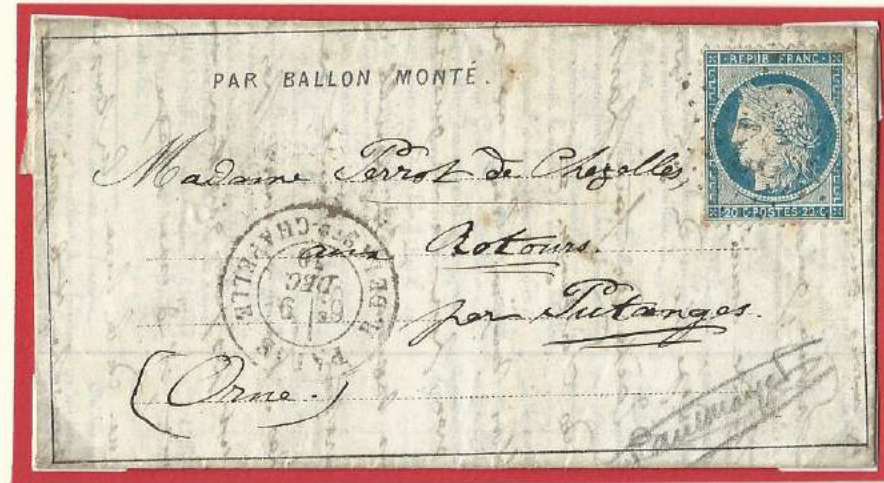 PAR BALLON MONTÉ.
REPUB. FRANC.
20 C. POSTES. 20 C.
Madame Perrot de Chezelles,
aux Rotours.
par Putanges.
(Orne.)
PARIS
CHAPELLE
9
DEC